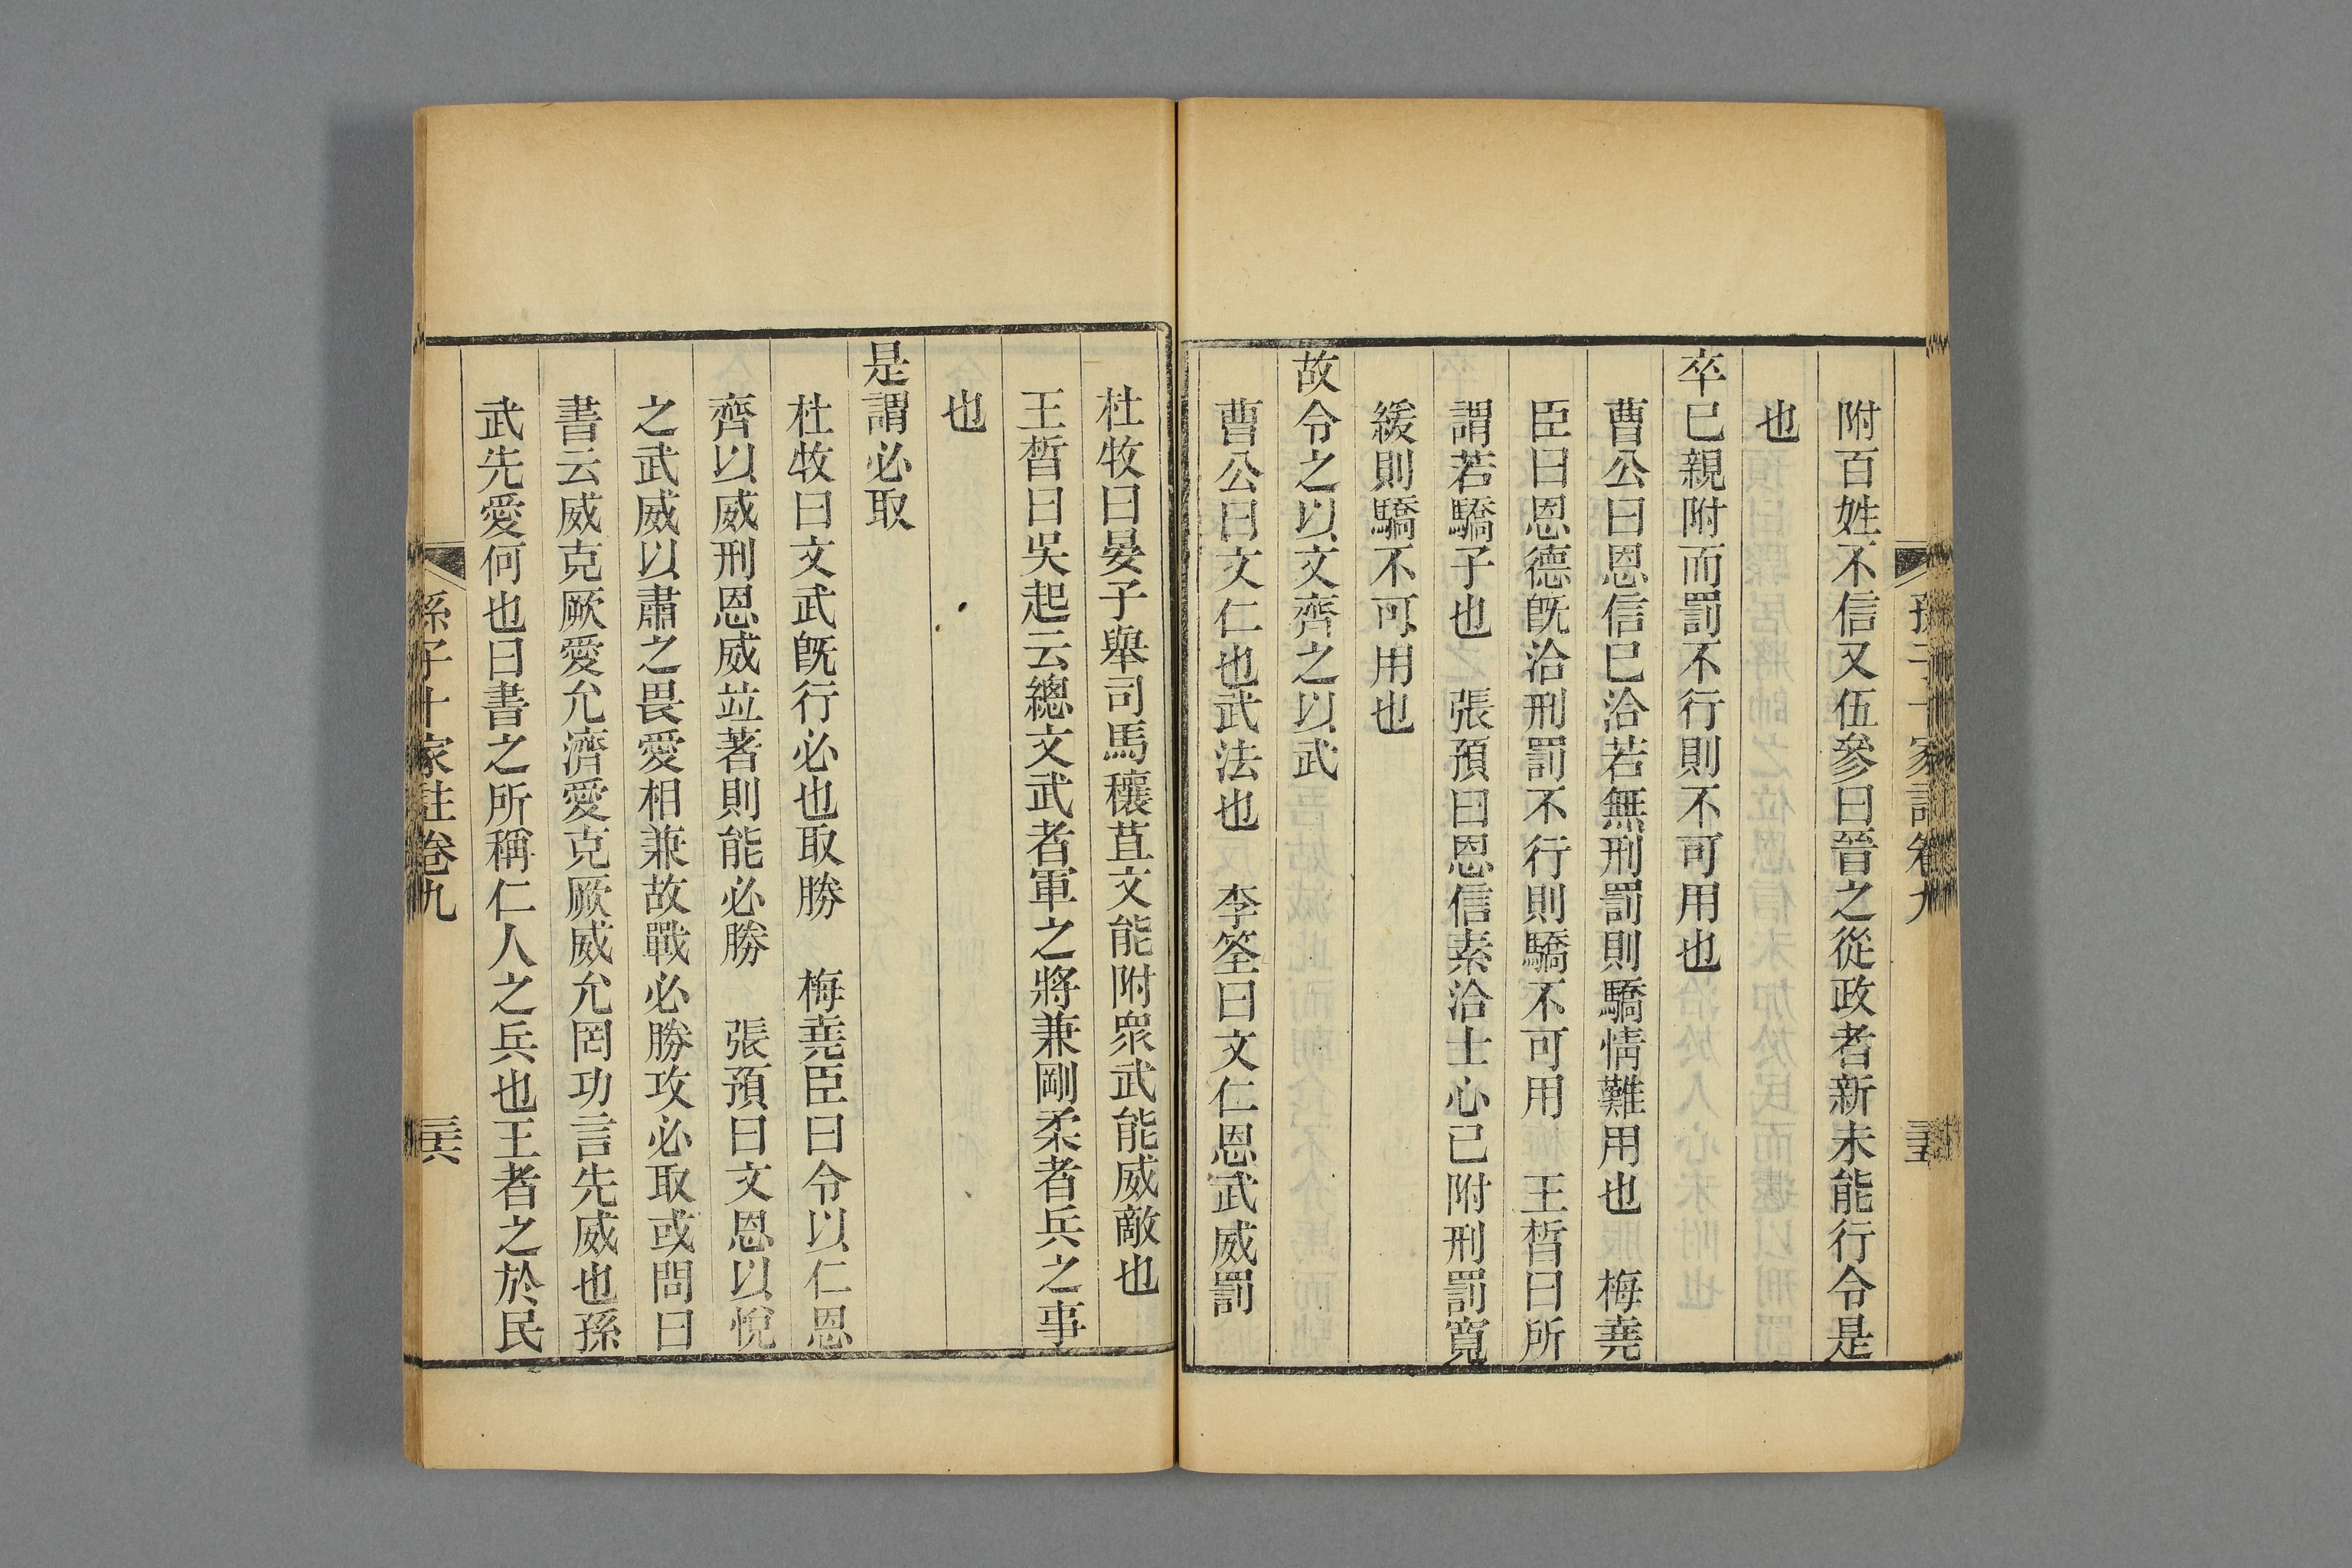 附百姓不信又伍參曰晉之從政者新未能行令是
也
卒已親附而罰不行則不可用也
曹公曰恩信已洽若無刑罰則驕情難用也　梅堯
臣曰恩德旣洽刑罰不行則驕不可用　王晳曰所
謂若驕子也　張預曰恩信素洽士心已附刑罰寬
緩則驕不可用也
故令之以文齊之以武
曹公曰文仁也武法也　李筌曰文仁恩武威罰
杜牧曰晏子舉司馬穰苴文能附衆武能威敵也
王晳曰吳起云總文武者軍之將兼剛柔者兵之事
也
是謂必取
杜牧曰文武旣行必也取勝　梅堯臣曰令以仁恩
齊以威刑恩威竝著則能必勝　張預曰文恩以悅
之武威以肅之畏愛相兼故戰必勝攻必取或問曰
書云威克厥愛允濟愛克厥威允罔功言先威也孫
武先愛何也曰書之所稱仁人之兵也王者之於民
孫子十家註卷九